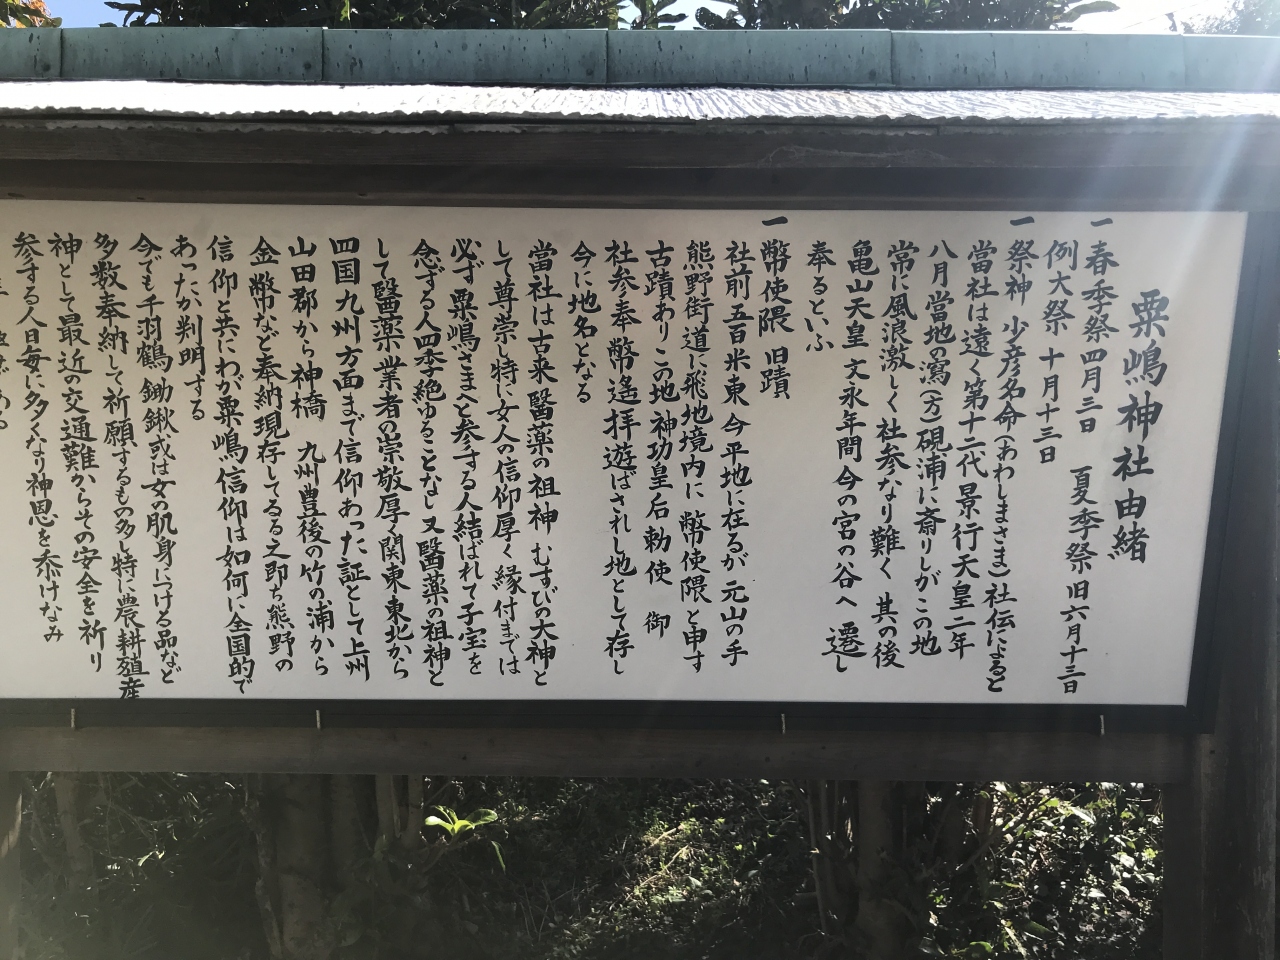 粟嶋神社由緒
一春季祭 四月三日 夏季祭旧六月十三日
例大祭 十月十三日
一祭神 少彦名命(あわしまさま)社伝によると
當社は遠く第十二代景行天皇二年
八月當地の瀉(方)硯浦に斎りしがこの地
常に風浪激しく社参なり難く 其の後
亀山天皇 文永年間 今の宮の谷へ 遷し
奉るといふ
一幣使隈 旧蹟
社前五百米東 今平地に在るが 元山の手
熊野街道に飛地境内に 幣使隈と申す
古蹟ありこの地神功皇后勅使 御
社参奉幣遙拝遊ばされし地として存し
今に地名となる
當社は古来醫薬の祖神 むすびの大神と
して尊崇し特に女人の信仰厚く縁付までは
必ず粟嶋さまへと参する人結ばれて子宝を
念ずる人四季絶ゆることなし又醫薬の祖神と
して醫薬業者の崇敬厚く関東東北から
四国九州方面まで信仰あった証として上州
山田郡から神橋 九州豊後の竹の浦から
金幣など奉納現存してるる之即ち熊野の
信仰と共にわが粟嶋信仰は如何に全国的で
あったか判明する
今でも千羽鶴 鋤鍬或は女の肌身につける品など
多数奉納して祈願するもの多し特に農耕殖産
神として最近の交通難からその安全を祈り
参する人日毎に多くなり神恩を忝けなみ